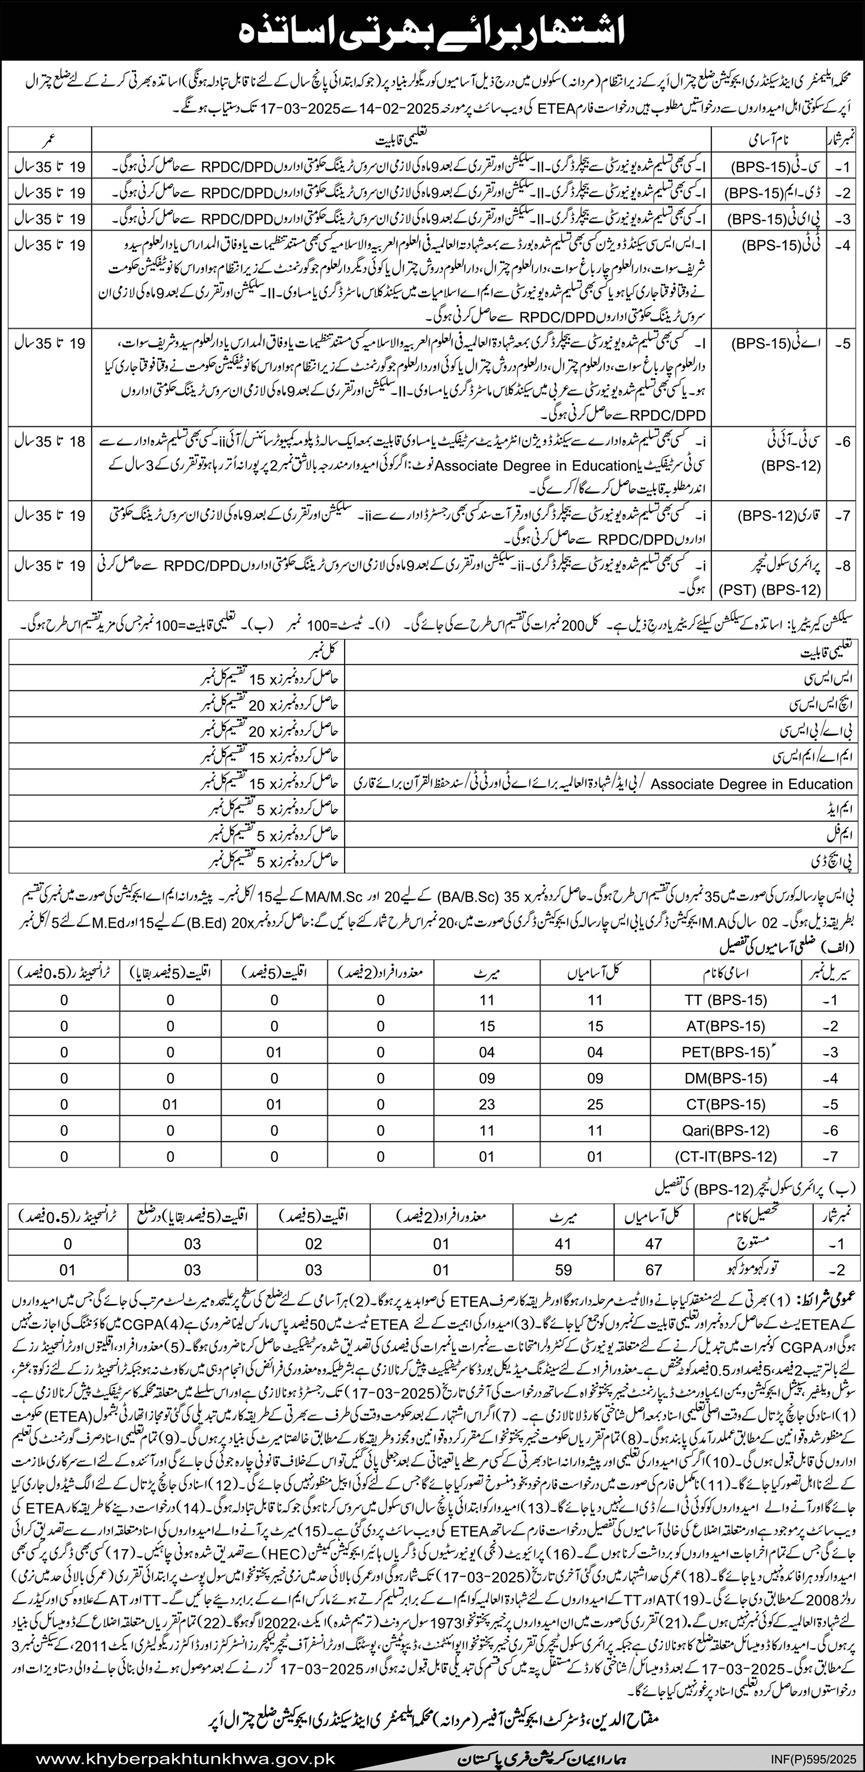 اشتہار برائے بھرتی اساتذہ
محکمہ ایلیمنٹری اینڈ سیکنڈری ایجوکیشن ضلع چترال اَپر کے زیر انتظام (مردانہ) سکولوں میں درج ذیل آسامیوں کو ریگولر بنیاد پر (جو کہ ابتدائی پانچ سال کے لئے ناقابل تبادلہ ہونگی) اساتذہ بھرتی کرنے کے لئے ضلع چترال
اَپر کے سکونتی اہل امیدواروں سے درخواستیں مطلوب ہیں درخواست فارم ETEA کی ویب سائٹ پر مورخہ 14-02-2025 سے 17-03-2025 تک دستیاب ہونگے۔
نمبر شمار نام آسامی تعلیمی قابلیت عمر
1۔ سی۔ٹی (BPS-15) I۔ کسی بھی تسلیم شدہ یونیورسٹی سے بیچلر ڈگری۔ II۔ سلیکشن اور تقرری کے بعد 9 ماہ کی لازمی ان سروس ٹریننگ حکومتی اداروں RPDC/DPD سے حاصل کرنی ہوگی۔ 19 تا 35 سال
2۔ ڈی۔ایم (BPS-15) I۔ کسی بھی تسلیم شدہ یونیورسٹی سے بیچلر ڈگری۔ II۔ سلیکشن اور تقرری کے بعد 9 ماہ کی لازمی ان سروس ٹریننگ حکومتی اداروں RPDC/DPD سے حاصل کرنی ہوگی۔ 19 تا 35 سال
3۔ پی ای ٹی (BPS-15) I۔ کسی بھی تسلیم شدہ یونیورسٹی سے بیچلر ڈگری۔ II۔ سلیکشن اور تقرری کے بعد 9 ماہ کی لازمی ان سروس ٹریننگ حکومتی اداروں RPDC/DPD سے حاصل کرنی ہوگی۔ 19 تا 35 سال
4۔ ٹی ٹی (BPS-15) I۔ ایس ایس سی سیکنڈ ڈویژن کسی بھی تسلیم شدہ بورڈ سے بمعہ شہادۃ العالمیہ فی العلوم العربیہ والاسلامیہ کسی بھی مستند تنظیمات یا وفاق المدارس یا دارالعلوم سیدو 19 تا 35 سال
شریف سوات، دارالعلوم چارباغ سوات، دارالعلوم چترال، دارالعلوم دروش چترال یا کوئی دیگر دارالعلوم جو گورنمنٹ کے زیر انتظام ہو اور اس کا نوٹیفکیشن حکومت
نے وقتاً فوقتاً جاری کیا ہو یا کسی بھی تسلیم شدہ یونیورسٹی سے ایم اے اسلامیات میں سیکنڈ کلاس ماسٹر ڈگری یا مساوی۔ II۔ سلیکشن اور تقرری کے بعد 9 ماہ کی لازمی ان
سروس ٹریننگ حکومتی اداروں RPDC/DPD سے حاصل کرنی ہوگی۔
5۔ اے ٹی (BPS-15) I۔ کسی بھی تسلیم شدہ یونیورسٹی سے بیچلر ڈگری بمعہ شہادۃ العالمیہ فی العلوم العربیہ والاسلامیہ کسی مستند تنظیمات یا وفاق المدارس یا دارالعلوم سیدو شریف سوات، 19 تا 35 سال
دارلعلوم چارباغ سوات، دارالعلوم چترال، دارالعلوم دروش چترال یا کوئی اور دارالعلوم جو گورنمنٹ کے زیر انتظام ہو اور اس کا نوٹیفکیشن حکومت نے وقتاً فوقتاً جاری کیا
ہو۔ یا کسی بھی تسلیم شدہ یونیورسٹی سے عربی میں سیکنڈ کلاس ماسٹر ڈگری یا مساوی۔ II۔ سلیکشن اور تقرری کے بعد 9 ماہ کی لازمی ان سروس ٹریننگ حکومتی اداروں
RPDC/DPD سے حاصل کرنی ہوگی۔
6۔ سی ٹی۔آئی ٹی (BPS-12) i۔ کسی بھی تسلیم شدہ ادارے سے سیکنڈ ڈویژن انٹرمیڈیٹ سرٹیفکیٹ یا مساوی قابلیت بمعہ ایک سالہ ڈپلومہ کمپیوٹر سائنس/آئی ii۔ کسی بھی تسلیم شدہ ادارے سے 18 تا 35 سال
سی ٹی سرٹیفکیٹ یا Associate Degree in Education نوٹ: اگر کوئی امیدوار مندرجہ بالا شق نمبر 2 پر پورا نہ اُتر رہا ہو تو تقرری کے 3 سال کے
اندر مطلوبہ قابلیت حاصل کرے گا/کرے گی۔
7۔ قاری (BPS-12) i۔ کسی بھی تسلیم شدہ یونیورسٹی سے بیچلر ڈگری اور قرآت سند کسی بھی رجسٹرڈ ادارے سے ii۔ سلیکشن اور تقرری کے بعد 9 ماہ کی لازمی ان سروس ٹریننگ حکومتی 19 تا 35 سال
اداروں RPDC/DPD سے حاصل کرنی ہوگی۔
8۔ پرائمری سکول ٹیچر (PST) (BPS-12) i۔ کسی بھی تسلیم شدہ یونیورسٹی سے بیچلر ڈگری۔ ii۔ سلیکشن اور تقرری کے بعد 9 ماہ کی لازمی ان سروس ٹریننگ حکومتی اداروں RPDC/DPD سے حاصل کرنی 19 تا 35 سال
ہوگی۔
سیلکشن کرییٹیریا: اساتذہ کے سیلکشن کیلئے کریٹیریا درج ذیل ہے۔ کل 200 نمبرات کی تقسیم اس طرح سے کی جائے گی۔ (ا)۔ ٹیسٹ=100 نمبر (ب)۔ تعلیمی قابلیت=100 نمبر جس کی مزید تقسیم اس طرح ہوگی۔
تعلیمی قابلیت کل نمبر
ایس ایس سی حاصل کردہ نمبرز x 15 تقسیم کل نمبر
ایچ ایس ایس سی حاصل کردہ نمبرز x 20 تقسیم کل نمبر
بی اے/بی ایس سی حاصل کردہ نمبرز x 20 تقسیم کل نمبر
ایم اے/ایم ایس سی حاصل کردہ نمبرز x 15 تقسیم کل نمبر
Associate Degree in Education /بی ایڈ/شہادۃ العالمیہ برائے اے ٹی اور ٹی ٹی/سند حفظ القرآن برائے قاری حاصل کردہ نمبرز x 15 تقسیم کل نمبر
ایم ایڈ حاصل کردہ نمبرز x 5 تقسیم کل نمبر
ایم فل حاصل کردہ نمبرز x 5 تقسیم کل نمبر
پی ایچ ڈی حاصل کردہ نمبرز x 5 تقسیم کل نمبر
بی ایس چار سالہ کورس کی صورت میں 35 نمبروں کی تقسیم اس طرح ہوگی۔ حاصل کردہ نمبر x 35 (BA/B.Sc) کے لیے 20 اور MA/M.Sc کے لیے 15/کل نمبر۔ پیشہ ورانہ ایم اے ایجوکیشن کی صورت میں نمبر کی تقسیم
بطریقہ ذیل ہوگی۔ 02 سال کی M.A ایجوکیشن ڈگری یا بی ایس چار سالہ کی ایجوکیشن ڈگری کی صورت میں، 20 نمبر اس طرح شمار کئے جائیں گے: حاصل کردہ نمبر 20x (B.Ed) کے لیے 15 اور M.Ed کے لئے 5/کل نمبر
(الف) ضلعی آسامیوں کی تفصیل
سیریل نمبر اسامی کا نام کل آسامیاں میرٹ معذور افراد (2 فیصد) اقلیت (5 فیصد) اقلیت (5 فیصد بقایا) ٹرانسجینڈر (0.5 فیصد)
1۔ TT (BPS-15) 11 11 0 0 0 0
2۔ AT(BPS-15) 15 15 0 0 0 0
3۔ PET(BPS-15) 04 04 0 01 0 0
4۔ DM(BPS-15) 09 09 0 0 0 0
5۔ CT(BPS-15) 25 23 0 01 01 0
6۔ Qari(BPS-12) 11 11 0 0 0 0
7۔ (CT-IT(BPS-12) 01 01 0 0 0 0
(ب) پرائمری سکول ٹیچر (BPS-12) کی تفصیل
نمبر شمار تحصیل کا نام کل آسامیاں میرٹ معذور افراد (2 فیصد) اقلیت (5 فیصد) اقلیت (5 فیصد بقایا) در ضلع ٹرانسجینڈر (0.5 فیصد)
1۔ مستوج 47 41 01 02 03 0
2۔ تورکہو موڑکہو 67 59 01 03 03 01
عمومی شرائط: (1) بھرتی کے لئے منعقد کیا جانے والا ٹیسٹ مرحلہ دار ہوگا اور طریقہ کار صرف ETEA کی صوابدید پر ہوگا۔ (2) ہر آسامی کے لئے ضلع کی سطح پر علیحدہ میرٹ لسٹ مرتب کی جائے گی جس میں امیدواروں
کے ETEA ٹیسٹ کے حاصل کردہ نمبر اور تعلیمی قابلیت کے نمبروں کو جمع کیا جائے گا۔ (3) امیدوار کی اہمیت کے لئے ETEA ٹیسٹ میں 50 فیصد پاس مارکس لینا ضروری ہے (4) CGPA میں کاؤنٹنگ کی اجازت نہیں
ہوگی اور CGPA کو نمبرات میں تبدیل کرنے کے لئے متعلقہ یونیورسٹی کے کنٹرولر امتحانات سے نمبرات یا نمبرات کی فیصدی کی تصدیق شدہ سرٹیفکیٹ حاصل کرنا ضروری ہوگا۔ (5) معذور افراد، اقلیتوں اور ٹرانسجینڈرز کے
لئے بالترتیب 2 فیصد، 5 فیصد اور 0.5 فیصد کوٹہ مختص ہے۔ معذور افراد کے لئے سٹینڈنگ میڈیکل بورڈ کا سرٹیفکیٹ پیش کرنا لازمی ہے بشرطیکہ وہ معذوری فرائض کی انجام دہی میں رکاوٹ نہ ہو جبکہ ٹرانسجینڈرز کے لئے زکوۃ، عشر،
سوشل ویلفیر، سپیشل ایجوکیشن ویمن ایمپاورمنٹ ڈیپارٹمنٹ خیبر پختونخواہ کے ساتھ درخواست کی آخری تاریخ (17-03-2025) تک رجسٹرڈ ہونا لازمی ہے اور اس سلسلے میں متعلقہ محکمہ کا سرٹیفکیٹ پیش کرنا لازمی ہے۔
(1) اسناد کی جانچ پڑتال کے وقت اصلی تعلیمی اسناد بمعہ اصل شناختی کارڈ لانا لازمی ہے۔ (7) اگر اس اشتہار کے بعد حکومت وقت کی طرف سے بھرتی کے طریقہ کار میں تبدیلی کی گئی تو مجاز اتھارٹی بشمول (ETEA) حکومت
کے منظور شدہ قوانین کے مطابق عملدرآمد کی پابند ہوگی۔ (8) تمام تقرریاں حکومت خیبر پختونخوا کے مقرر کردہ قوانین و مجوز و طریقہ کار کے مطابق خالصتا میرٹ کی بنیاد پر ہوں گی۔ (9) تمام تعلیمی اسناد صرف گورنمنٹ کی تعلیم
اداروں کی قابل قبول ہوں گی۔ (10) اگر کسی امیدوار کی تعلیمی اور پیشہ ورانہ اسناد بھرتی کے کسی مرحلے یا تعیناتی کے بعد جعلی پائی گئیں تو اس کے خلاف قانونی چارہ جوئی کی جائے گی اور آئندہ کے لئے اسے سرکاری ملازمت
کے لئے نااہل تصور کیا جائے گا۔ (11) نامکمل فارم کی صورت میں درخواست فارم خود بخود منسوخ تصور کیا جائے گا جس کے لئے کوئی اپیل منظور نہیں کی جائے گی۔ (12) اسناد کی جانچ پڑتال کے لئے الگ شیڈول جاری کیا
جائے گا اور آنے والے امیدواروں کو کوئی ٹی اے/ڈی اے نہیں دیا جائے گا۔ (13) امیدوار کو ابتدائی پانچ سال اسی سکول میں سروس کرنا ہوگی جو کہ ناقابل تبادلہ ہوگی۔ (14) درخواست دینے کا طریقہ کار ETEA کی
ویب سائٹ پر موجود ہے اور متعلقہ اضلاع کی خالی آسامیوں کی تفصیل درخواست فارم کے ساتھ ETEA کی ویب سائٹ پر دی گئی ہے۔ (15) میرٹ پر آنے والے امیدواروں کی اسناد متعلقہ ادارے سے تصدیق کرائی
جائے گی جس کے تمام اخراجات امیدواروں کو برداشت کرنا ہوں گے۔ (16) پرائیویٹ (نجی) یونیورسٹیوں کی ڈگریاں ہائیر ایجوکیشن کمیشن (HEC) سے تصدیق شدہ ہونی چاہئیں۔ (17) کسی بھی ڈگری پر کسی بھی
امیدوار کو دہرا فائدہ نہیں دیا جائے گا۔ (18) عمر کی حد اشتہار میں دی گئی آخری تاریخ (17-03-2025) تک شمار ہوگی اور عمر کی بالائی حد میں نرمی خیبر پختونخوا میں سول پوسٹ پر ابتدائی تقرری (عمر کی بالائی حد میں نرمی)
رولز 2008 کے مطابق دی جائے گی۔ (19) AT اور TT کے امیدواروں کے لئے شہادۃ العالمیہ کو ایم اے کے برابر تسلیم کرتے ہوئے مارکس ایم اے کے برابر دیئے جائیں گے۔ TT اور AT کے علاوہ کسی اور کیڈر کے
لئے شہادۃ العالمیہ کے کوئی نمبر نہیں ہوں گے۔ (21) تقرری کی صورت میں ان امیدواروں پر خیبر پختونخوا 1973 سول سرونٹ (ترمیم شدہ) ایکٹ، 2022 لاگو ہوگا۔ (22) تمام تقرریاں متعلقہ اضلاع کے ڈومیسائل کی بنیاد
پر ہوں گی۔ امیدوار کا ڈومیسائل متعلقہ ضلع کا ہونا لازمی ہے جبکہ پرائمری سکول ٹیچر کی تقرری خیبر پختونخوا اپوائنٹمنٹ، ڈیپوٹیشن، پوسٹنگ اور ٹرانسفر آف ٹیچر لیکچررز انسٹرکٹرز اور ڈاکٹرز ریگولیٹری ایکٹ 2011، کے سیکشن نمبر 3
کے مطابق ہوگی۔ 17-03-2025 کے بعد ڈومیسائل/شناختی کارڈ کے مستقل پتہ میں کسی قسم کی تبدیلی قابل قبول نہ ہوگی اور 17-03-2025 گزرنے کے بعد موصول ہونے والی بنائی جانے والی دستاویزات اور
درخواستوں اور حاصل کردہ تعلیمی اسناد پر غور نہیں کیا جائے گا۔
مفتاح الدین، ڈسٹرکٹ ایجوکیشن آفیسر (مردانہ) محکمہ ایلیمنٹری اینڈ سیکنڈری ایجوکیشن ضلع چترال اَپر
www.khyberpakhtunkhwa.gov.pk ہمارا ایمان کرپشن فری پاکستان INF(P)595/2025